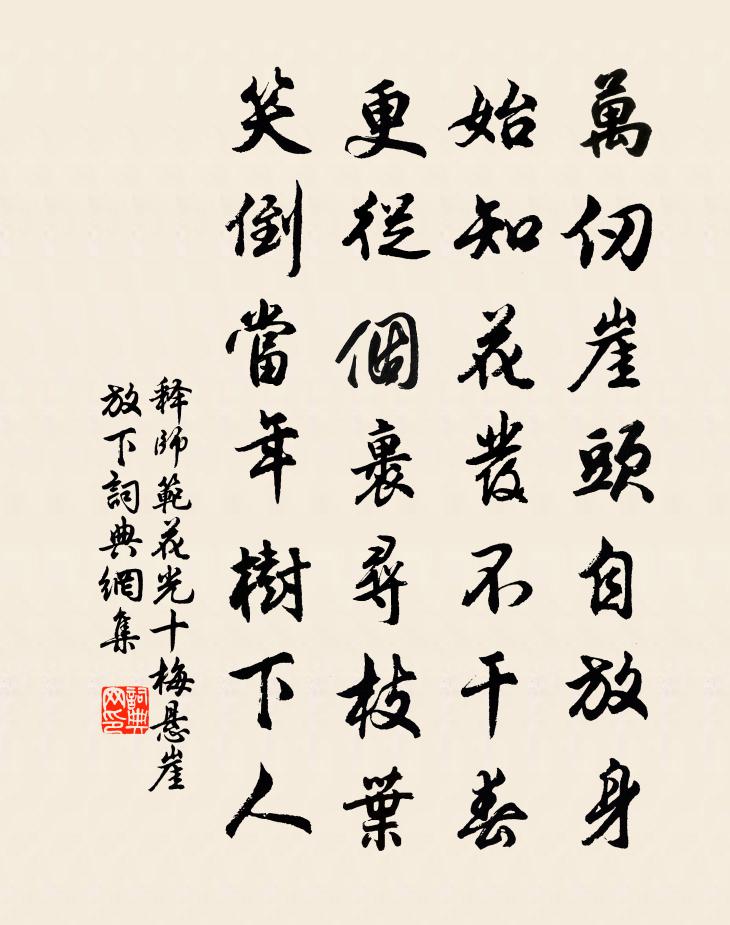 萬仞崖頭自放身
始知花發不干春
更從個裹尋枝葉
笑倒當年樹下人
释師範花光十梅悬崖
放下詞典網集
詞典网印